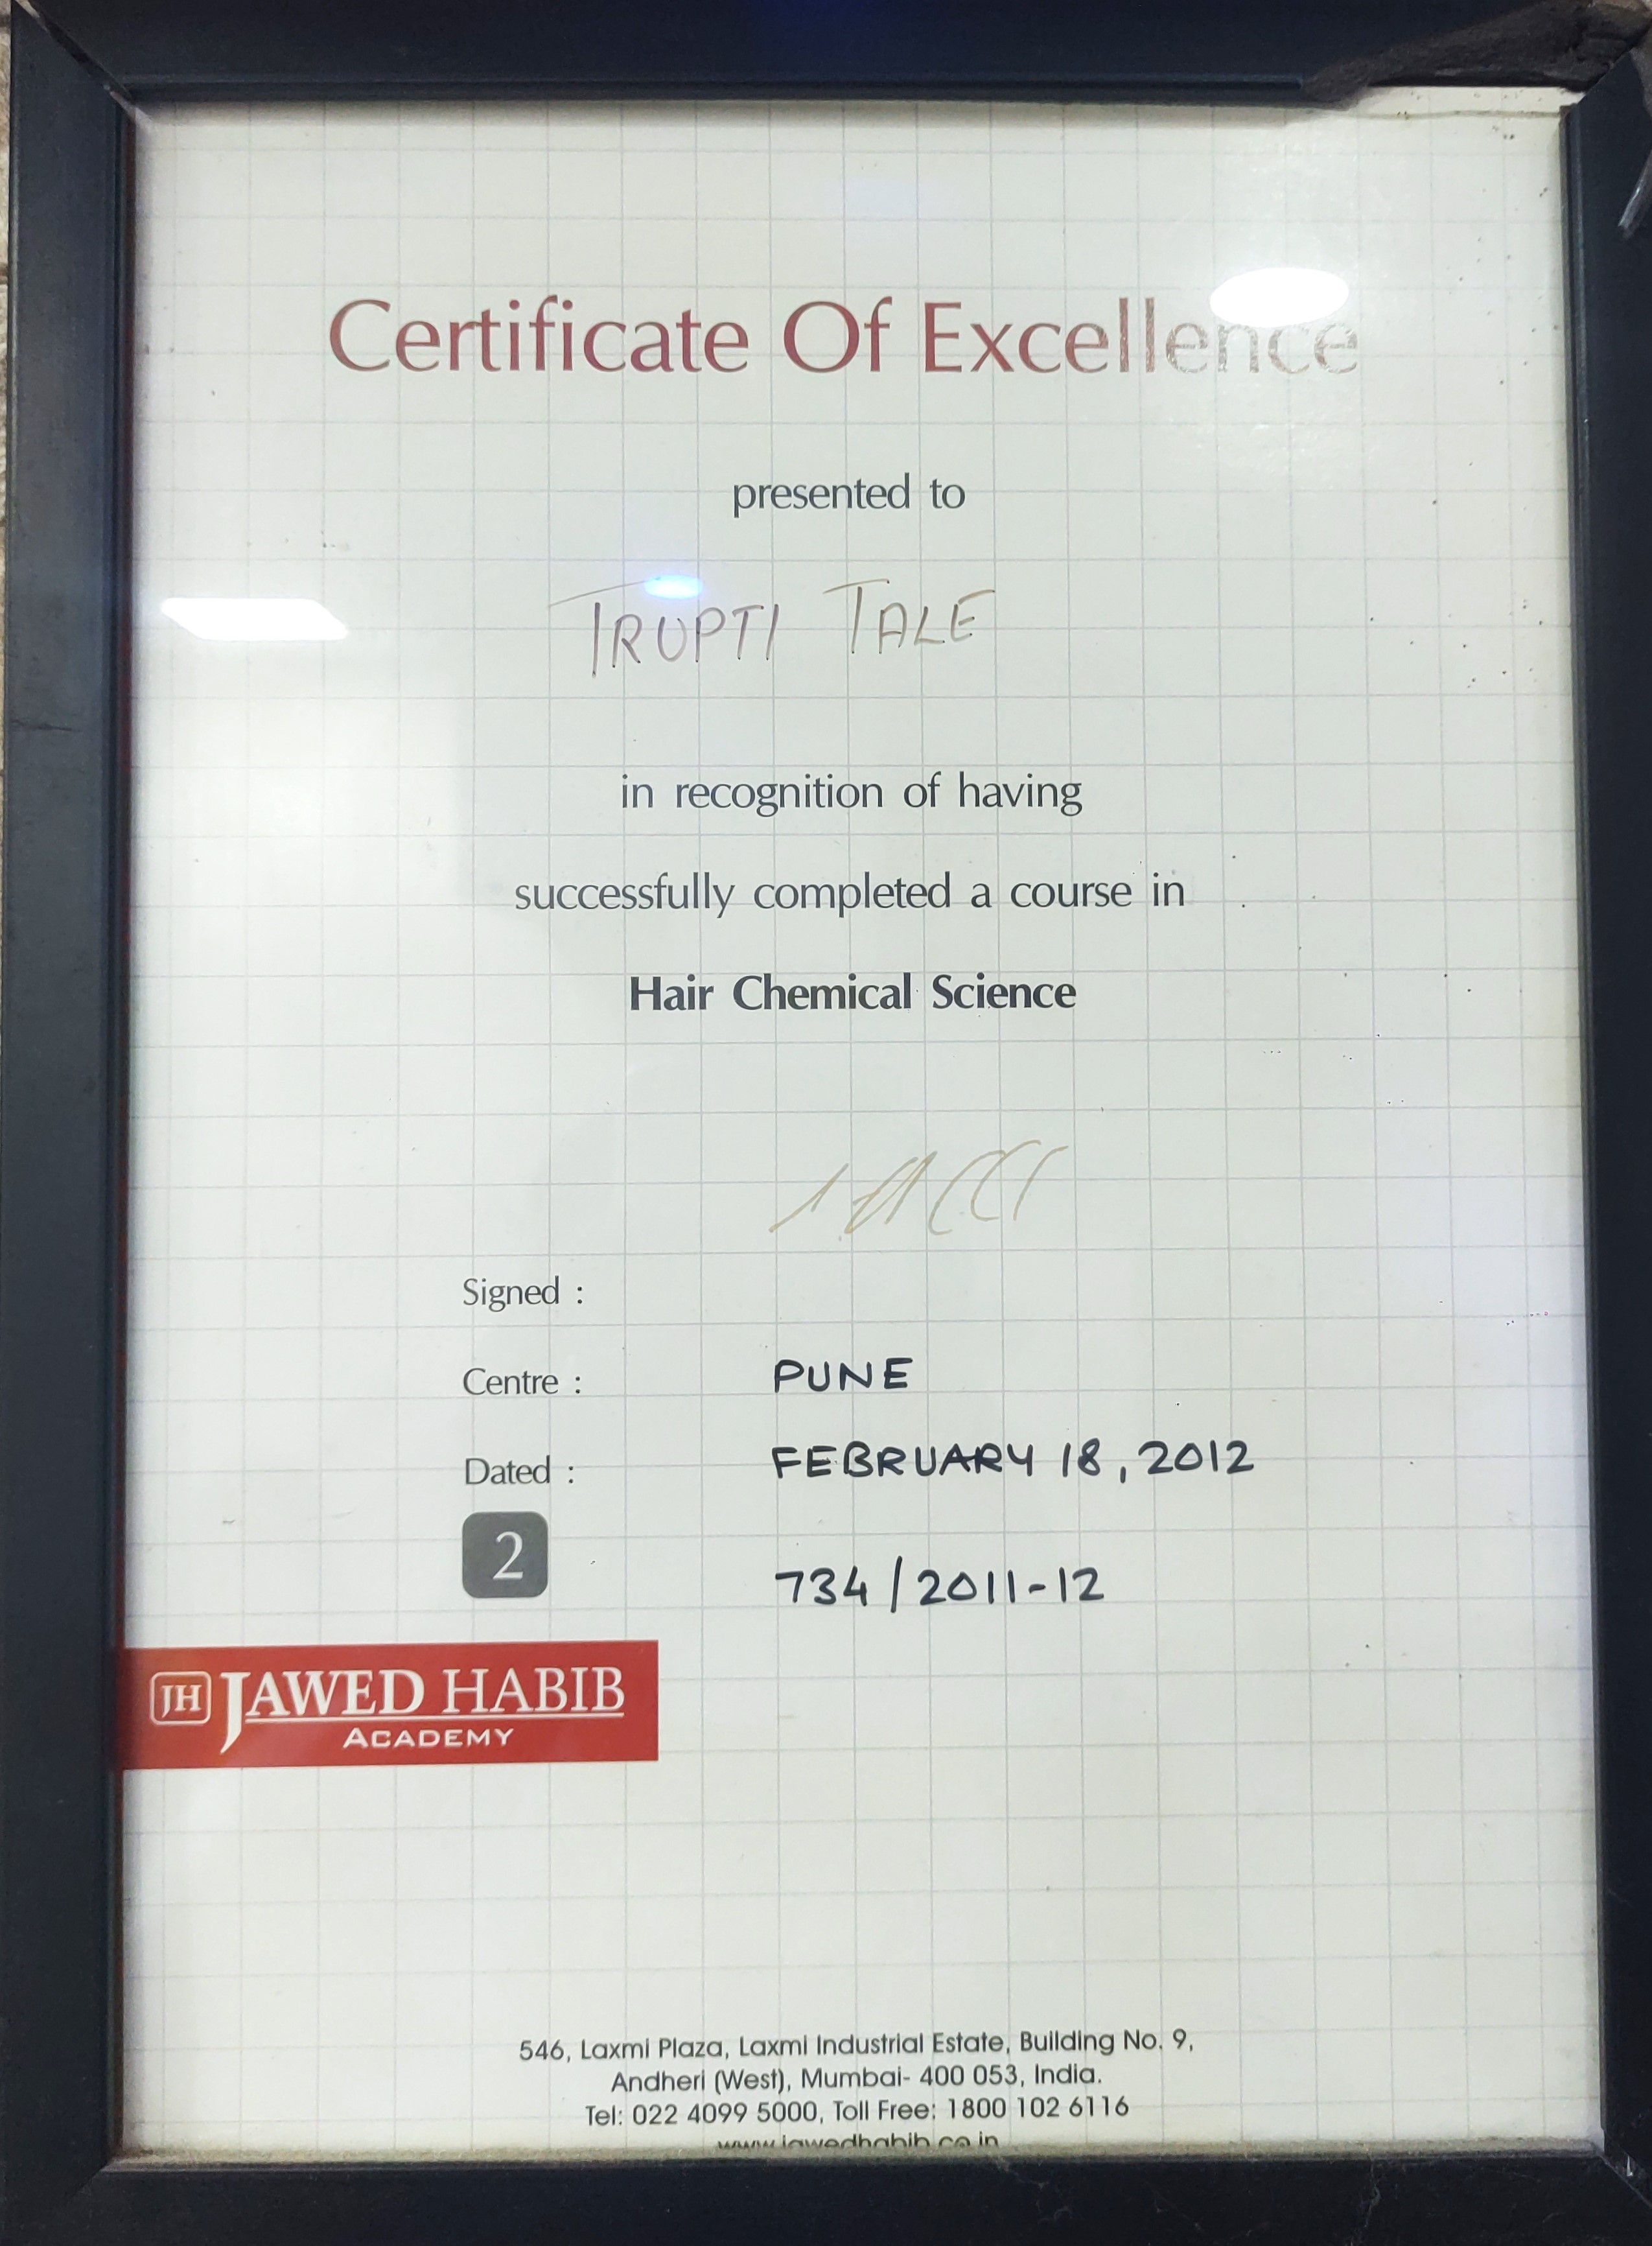 Certificate Of Excellence
presented to
TRUPTI TALE
in recognition of having
successfully completed a course in
Hair Chemical Science
Signed :
Centre : PUNE
Dated : FEBRUARY 18, 2012
2 734/2011-12
JH JAWED HABIB
ACADEMY
546, Laxmi Plaza, Laxmi Industrial Estate, Building No. 9,
Andheri (West), Mumbai- 400 053, India.
Tel: 022 4099 5000, Toll Free: 1800 102 6116
www.jawedhabib.co.in